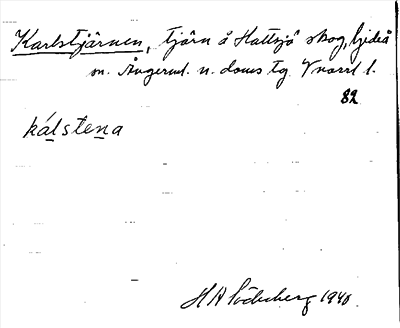 Karlstjärnen, tjärn å Hattsjö skog, Gideå
sn. Ångerml. n. doms tg. Vnorrl l.
82
kálstena
H A Söderberg 1940.